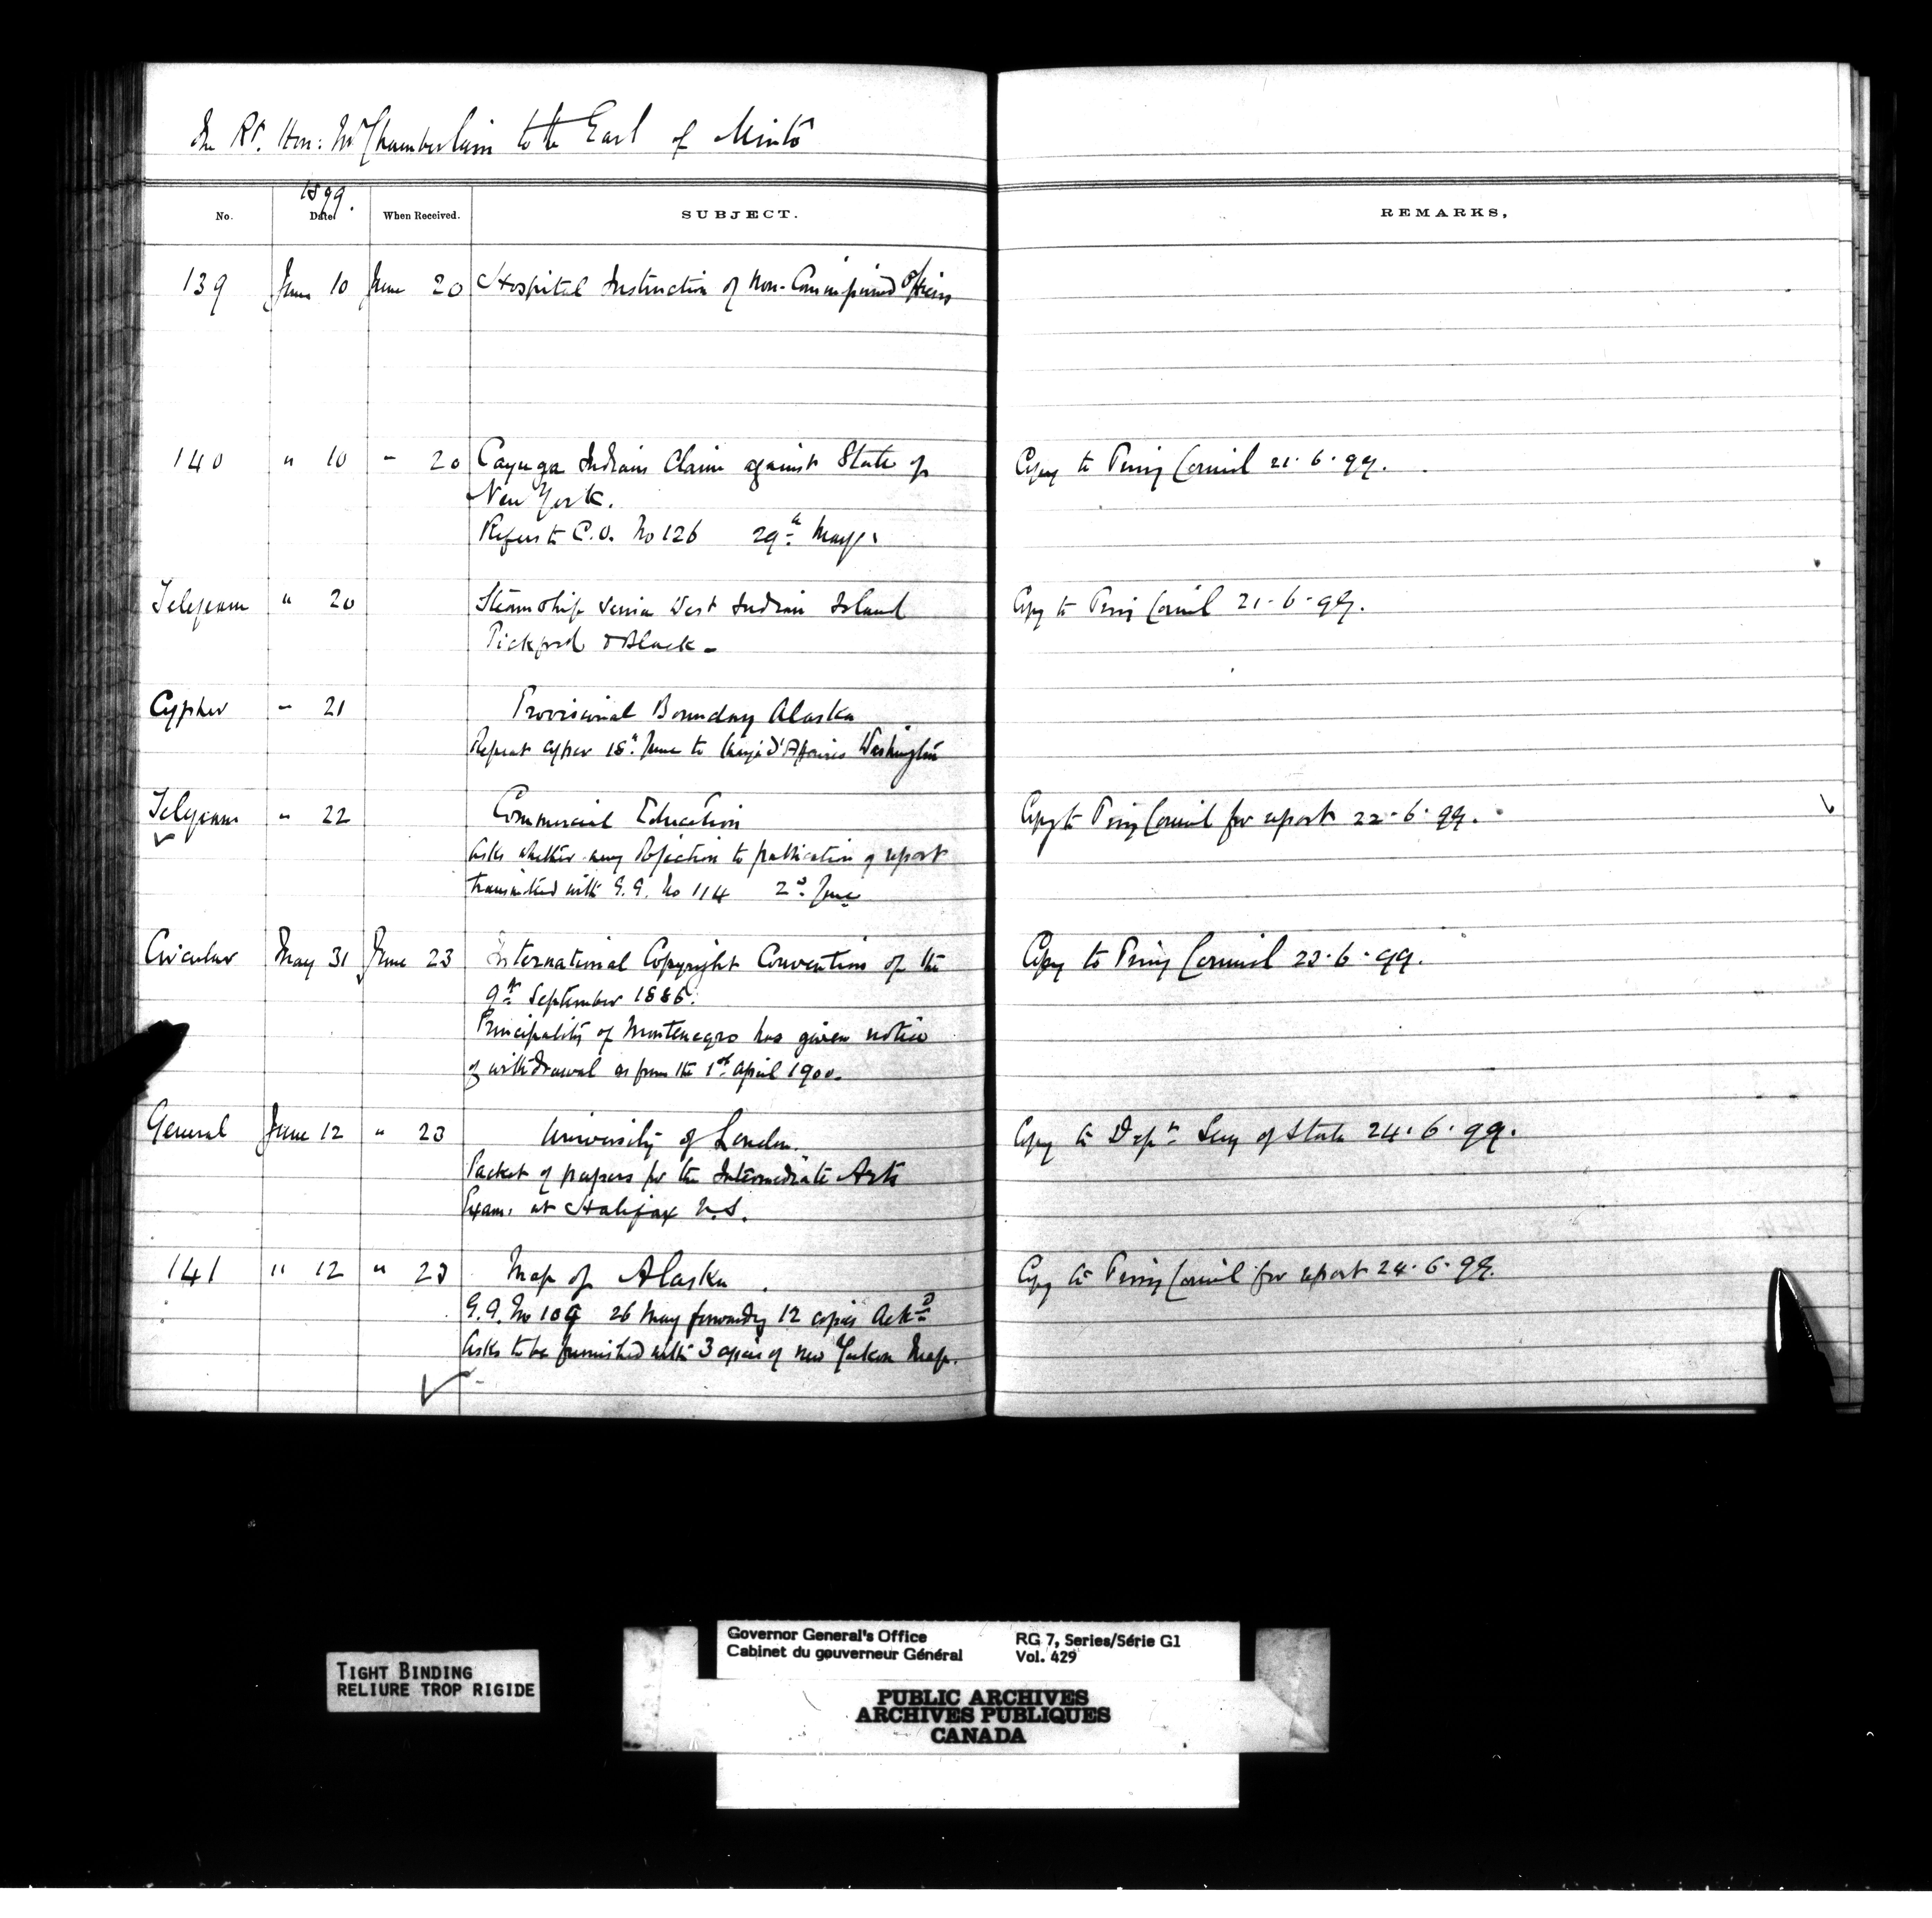 The Rt. Hon: Mr Chamberlain to the Earl of Minto
1899.
No. Date When Received. SUBJECT. REMARKS,
139 June 10 June 20 Hospital Instruction of Non-Commissioned Officers
140 " 10 " 20 Cayuga Indians Claim against State of Copy to Privy Council 21.6.99.
New York.
Refers to C.O. No 126 29th May.
Telegram " 20 Steamship Service West Indian Island Copy to Privy Council 21.6.99.
Pickford & Black -
Cypher " 21 Provisional Boundary Alaska
Repeat cypher 18th June to Chargé d'Affaires Washington
Telegram " 22 Commercial Education Copy to Privy Council for report 22.6.99.
Asks whether any objection to publication of report
transmitted with G.G. No 114 2d June
Circular May 31 June 23 International Copyright Convention of the Copy to Privy Council 23.6.99.
9th September 1886.
Principality of Montenegro has given notice
of withdrawal as from the 1st April 1900.
General June 12 " 23 University of London. Copy to Dept Secy of State 24.6.99.
Packet of papers for the Intermediate Arts
Exam. at Halifax N.S.
141 " 12 " 23 Map of Alaska. Copy to Privy Council for report 24.6.99.
G.G. No 109 26 May forwarding 12 copies Ackd
Asks to be furnished with 3 copies of new Yukon Map.
TIGHT BINDING
RELIURE TROP RIGIDE
Governor General's Office RG 7, Series/Série G1
Cabinet du gouverneur Général Vol. 429
PUBLIC ARCHIVES
ARCHIVES PUBLIQUES
CANADA